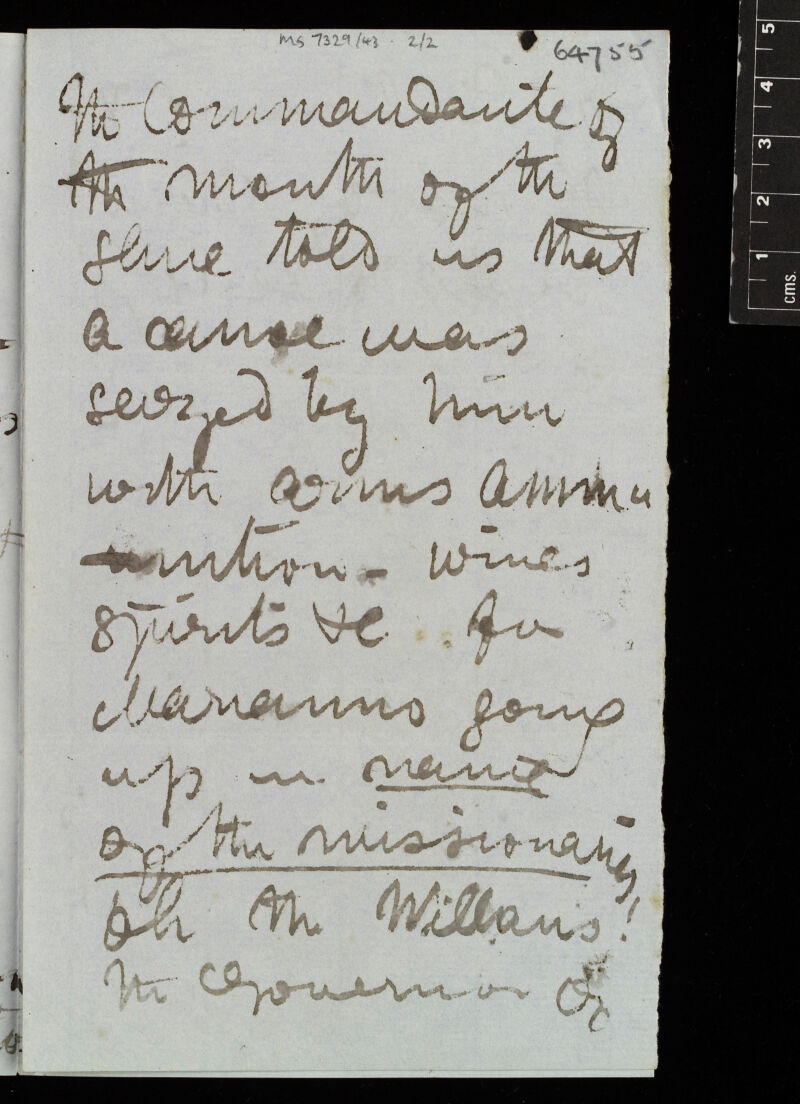 MS 7329/43 2/2
64755
The Commandante of
the mouth of the
same told us that
a canoe was
seized by him
with arms ammu
nition - wines
spirits &c for
Marianno going
up in name
of the missionaries,
Oh the Villans!
The Governor of
5
4
3
2
1
cms.